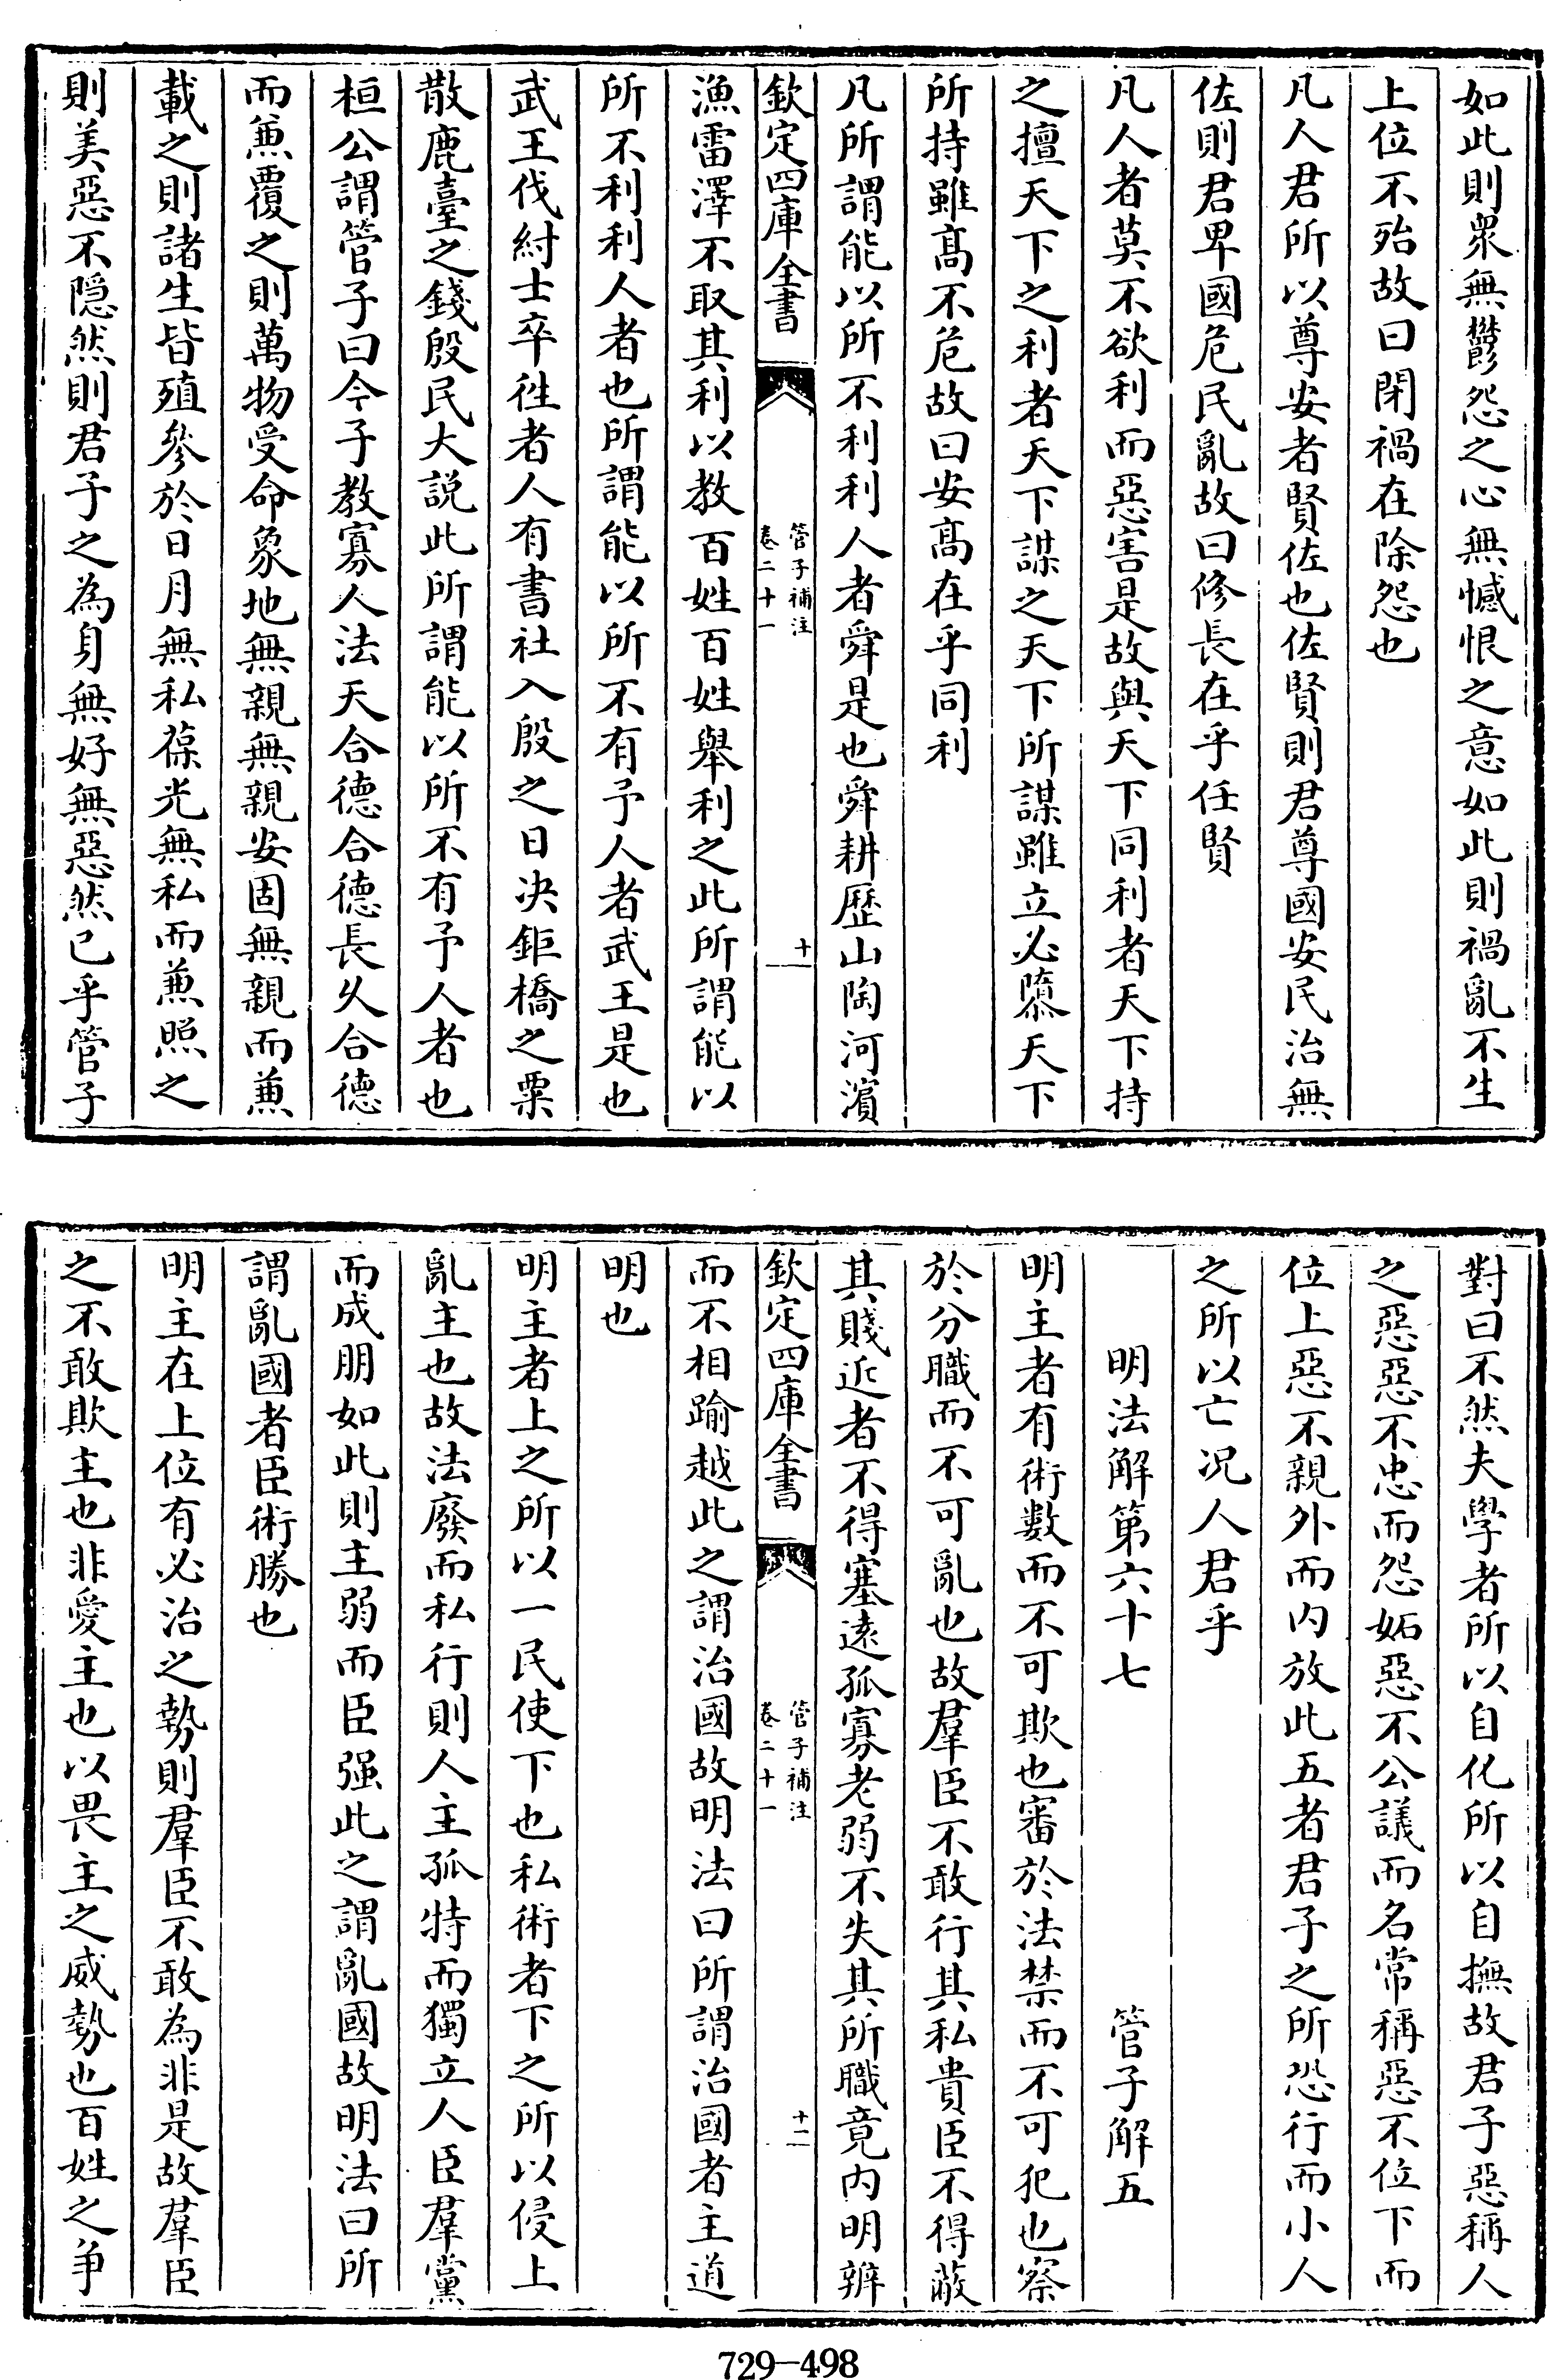 如此則衆無鬱怨之心無憾恨之意如此則禍亂不生
上位不殆故曰閉禍在除怨也
凡人君所以尊安者賢佐也佐賢則君尊國安民治無
佐則君卑國危民亂故曰修長在乎任賢
凡人者莫不欲利而惡害是故與天下同利者天下持
之擅天下之利者天下謀之天下所謀雖立必隳天下
所持雖髙不危故曰安髙在乎同利
凡所謂能以所不利利人者舜是也舜耕歷山陶河濱
欽定四庫全書
管子補注
卷二十一
十一
漁雷澤不取其利以教百姓百姓舉利之此所謂能以
所不利利人者也所謂能以所不有予人者武王是也
武王伐紂士卒徃者人有書社入殷之日决鉅橋之粟
散鹿臺之錢殷民大説此所謂能以所不有予人者也
桓公謂管子曰今子教寡人法天合德合德長久合德
而兼覆之則萬物受命象地無親無親安固無親而兼
載之則諸生皆殖參於日月無私葆光無私而兼照之
則美惡不隠然則君子之為身無好無惡然已乎管子
對曰不然夫學者所以自化所以自撫故君子惡稱人
之惡惡不忠而怨妬惡不公議而名常稱惡不位下而
位上惡不親外而内放此五者君子之所恐行而小人
之所以亡况人君乎
明法解第六十七　管子解五
明主者有術數而不可欺也審於法禁而不可犯也察
於分職而不可亂也故羣臣不敢行其私貴臣不得蔽
其賤近者不得塞逺孤寡老弱不失其所職竟内明辨
欽定四庫全書
管子補注
卷二十一
十二
而不相踰越此之謂治國故明法曰所謂治國者主道
明也
明主者上之所以一民使下也私術者下之所以侵上
亂主也故法廢而私行則人主孤特而獨立人臣羣黨
而成朋如此則主弱而臣强此之謂亂國故明法曰所
謂亂國者臣術勝也
明主在上位有必治之勢則羣臣不敢為非是故羣臣
之不敢欺主也非愛主也以畏主之威勢也百姓之爭
729-498